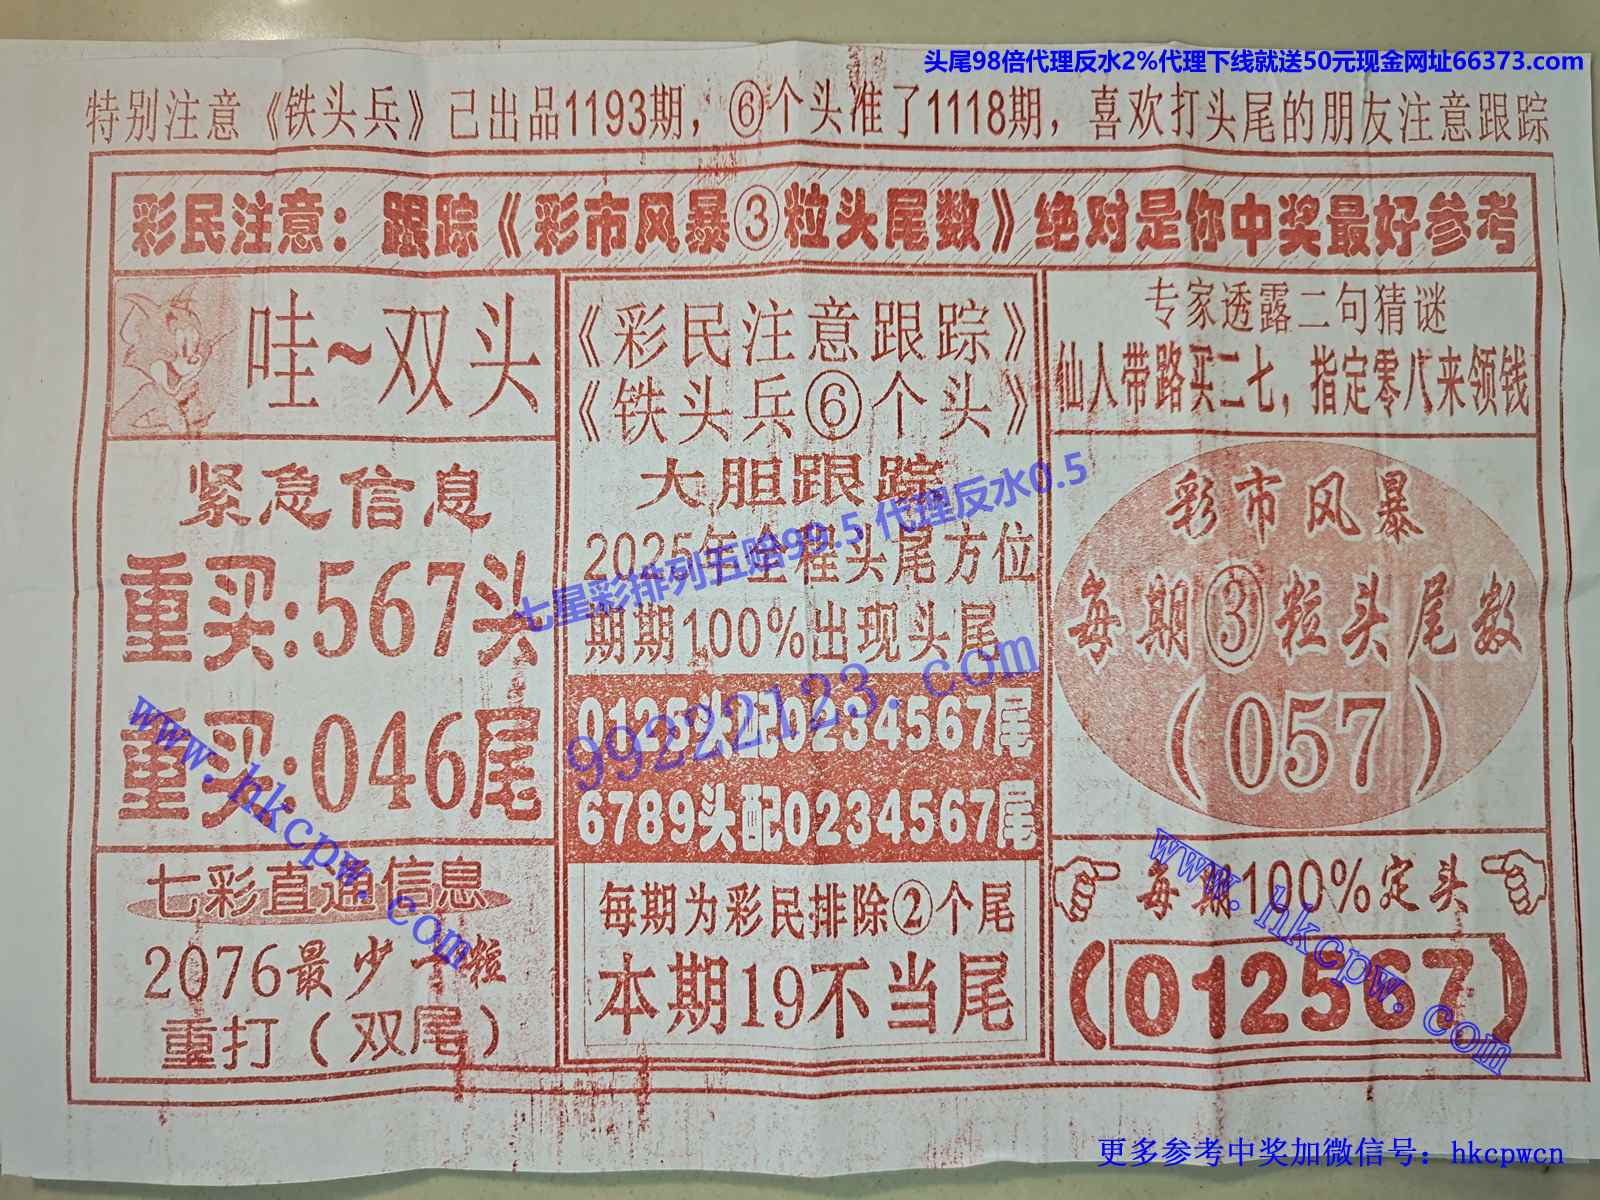 头尾98倍代理反水2%代理下线就送50元现金网址66373.com
特别注意《铁头兵》己出品1193期，⑥个头准了1118期，喜欢打头尾的朋友注意跟踪
彩民注意：跟踪《彩市风暴③粒头尾数》绝对是你中奖最好参考
哇~双头
紧急信息
重买:567头
重买:046尾
七彩直通信息
2076最少二粒
重打（双尾）
《彩民注意跟踪》
《铁头兵⑥个头》
大胆跟踪
2025年全程头尾方位
期期100%出现头尾
0125头配0234567尾
6789头配0234567尾
每期为彩民排除②个尾
本期19不当尾
专家透露二句猜谜
仙人带路买二七，指定零八来领钱
彩市风暴
每期③粒头尾数
（057）
每期100%定头
（012567）
七星彩排列五赔99.5 代理反水0.5
99222123.com
www.hkcpw.com
www.hkcpw.com
更多参考中奖加微信号：hkcpwcn